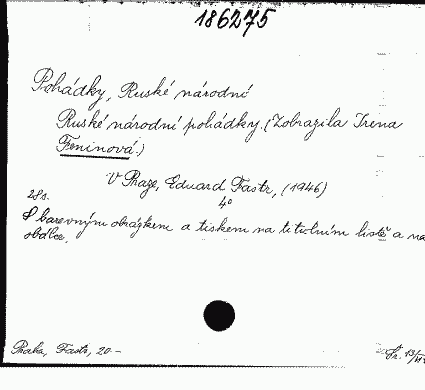 186275
Pohádky, Ruské národní
Ruské národní pohádky. (Zobrazila Irena
Feninová.)
V Praze, Eduard Fastr, (1946)
28 s.
4°
S barevným obrázkem a tiskem na titulním listě a na
obálce.
Praha, Fastr, 20-